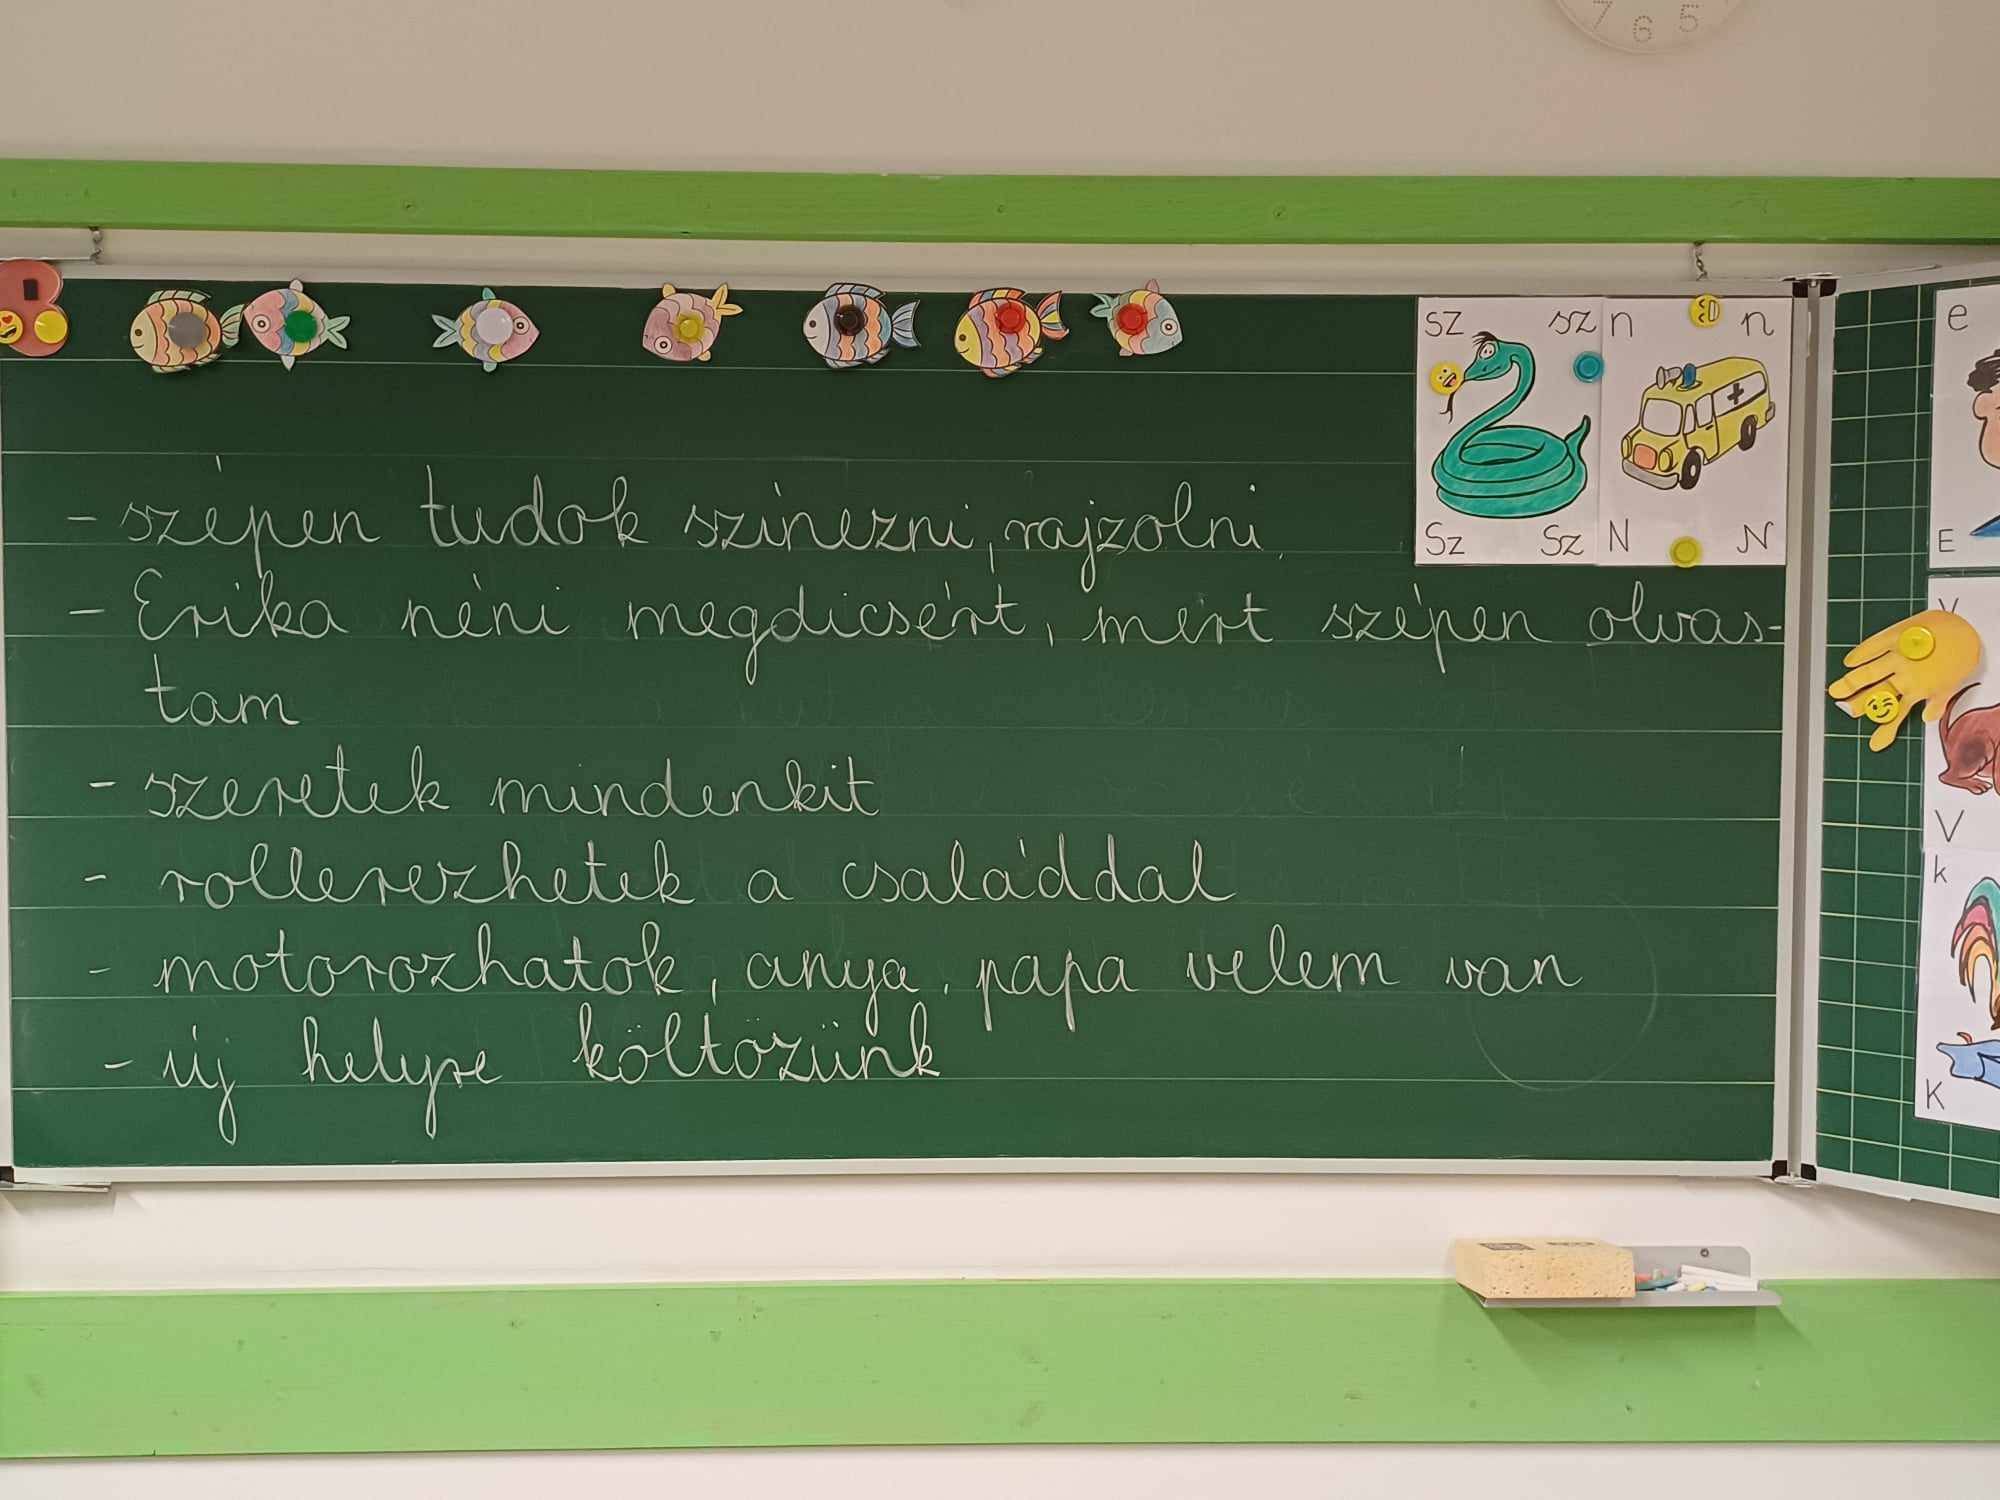 7 6 5
sz sz n n e
Sz Sz N N E
- szépen tudok színezni, rajzolni.
- Erika néni megdicsért, mert szépen olvas-
tam
- szeretek mindenkit
- rollerezhetek a családdal
- motorozhatok, anya, papa velem van
- új helyre költözünk
V
k
K